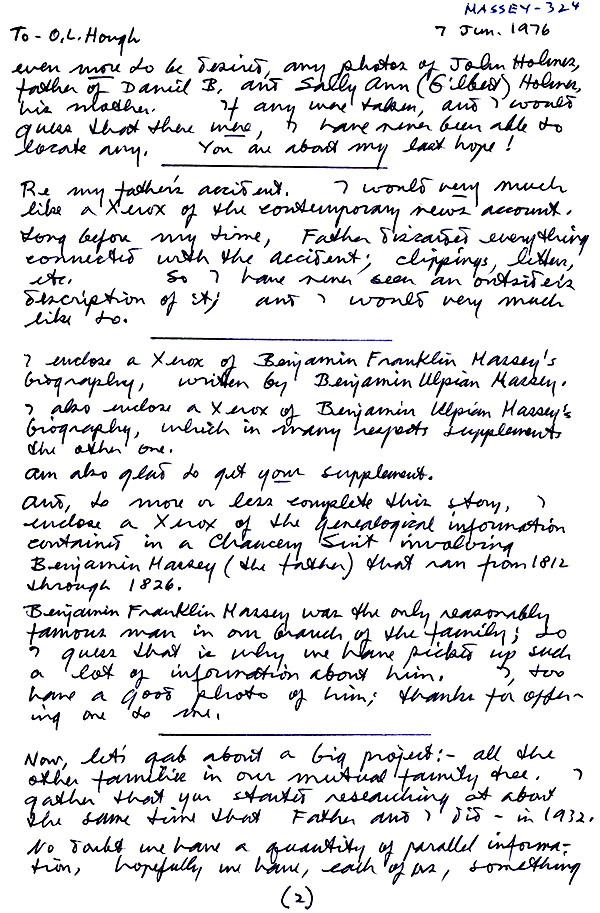 MASSEY-324
To - O.L. Hough
7 Jun. 1976
even more to be desired, any photos of John Holmes,
father of Daniel B. and Sally Ann (Gilbert) Holmes,
his mother. If any were taken, and I would
guess that there were, I have never been able to
locate any. You are about my last hope!
Re my father's accident. I would very much
like a Xerox of the contemporary news account.
Long before my time, Father discarded everything
connected with the accident; clippings, letters,
etc. So I have never seen an outsider's
description of it; and I would very much
like to.
I enclose a Xerox of Benjamin Franklin Massey's
biography, written by Benjamin Ulpian Massey.
I also enclose a Xerox of Benjamin Ulpian Massey's
biography, which in many respects supplements
the other one.
Am also glad to get your supplement.
And, to more or less complete this story, I
enclose a Xerox of the genealogical information
contained in a Chancery Suit involving
Benjamin Massey (the father) that ran from 1812
through 1826.
Benjamin Franklin Massey was the only reasonably
famous man in our branch of the family; so
I guess that is why we have picked up such
a lot of information about him. I, too
have a good photo of him; thanks for offer-
ing one to me.
Now, let's gab about a big project:- all the
other families in our mutual family tree. I
gather that you started researching at about
the same time that Father and I did - in 1932.
No doubt we have a quantity of parallel informa-
tion, hopefully we have, each of us, something
(2)